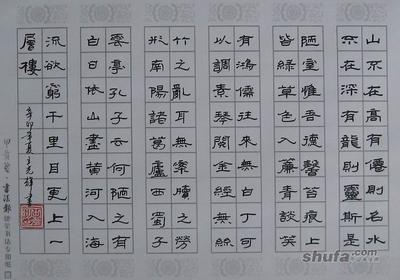 山不在高有僊則名水
不在深有龍則靈斯是
陋室惟吾德馨苔痕上
皆綠草色入簾青談笑
有鴻儒往來無白丁可
以調素琴閱金經無絲
竹之亂耳無案牘之勞
形南陽諸葛廬西蜀子
雲亭孔子云何陋之有
白日依山盡黃河入海
流欲窮千里目更上一
層樓 辛卯年夏王光輝書
書法報
shufa.com